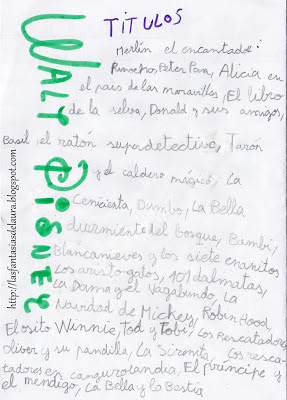 TITULOS
WALT DISNEY
Merlín el encantador:
Pinocho, Peter Pan, Alicia en
el pais de las maravillas, El libro
de la selva, Donald y sus amigos,
Basil, el ratón superdetective, Tarón
y el caldero mágico, La
Cenicienta, Dumbo, La Bella
durmiente del bosque, Bambi,
Blancanieves y los siete enanitos
Los aristogatos, 101 dalmatas,
La Dama y el Vagabundo, La
Navidad de Mickey, Robin Hood,
El osito Winnie, Tod y Tobi, Los Rescatadores
oliver y su pandilla, La Sirenita, Los resca-
tadores en cangurolandia, El príncipe y
el mendigo, La Bella y la Bestia
http://lasfantasiasdelaura.blogspot.com